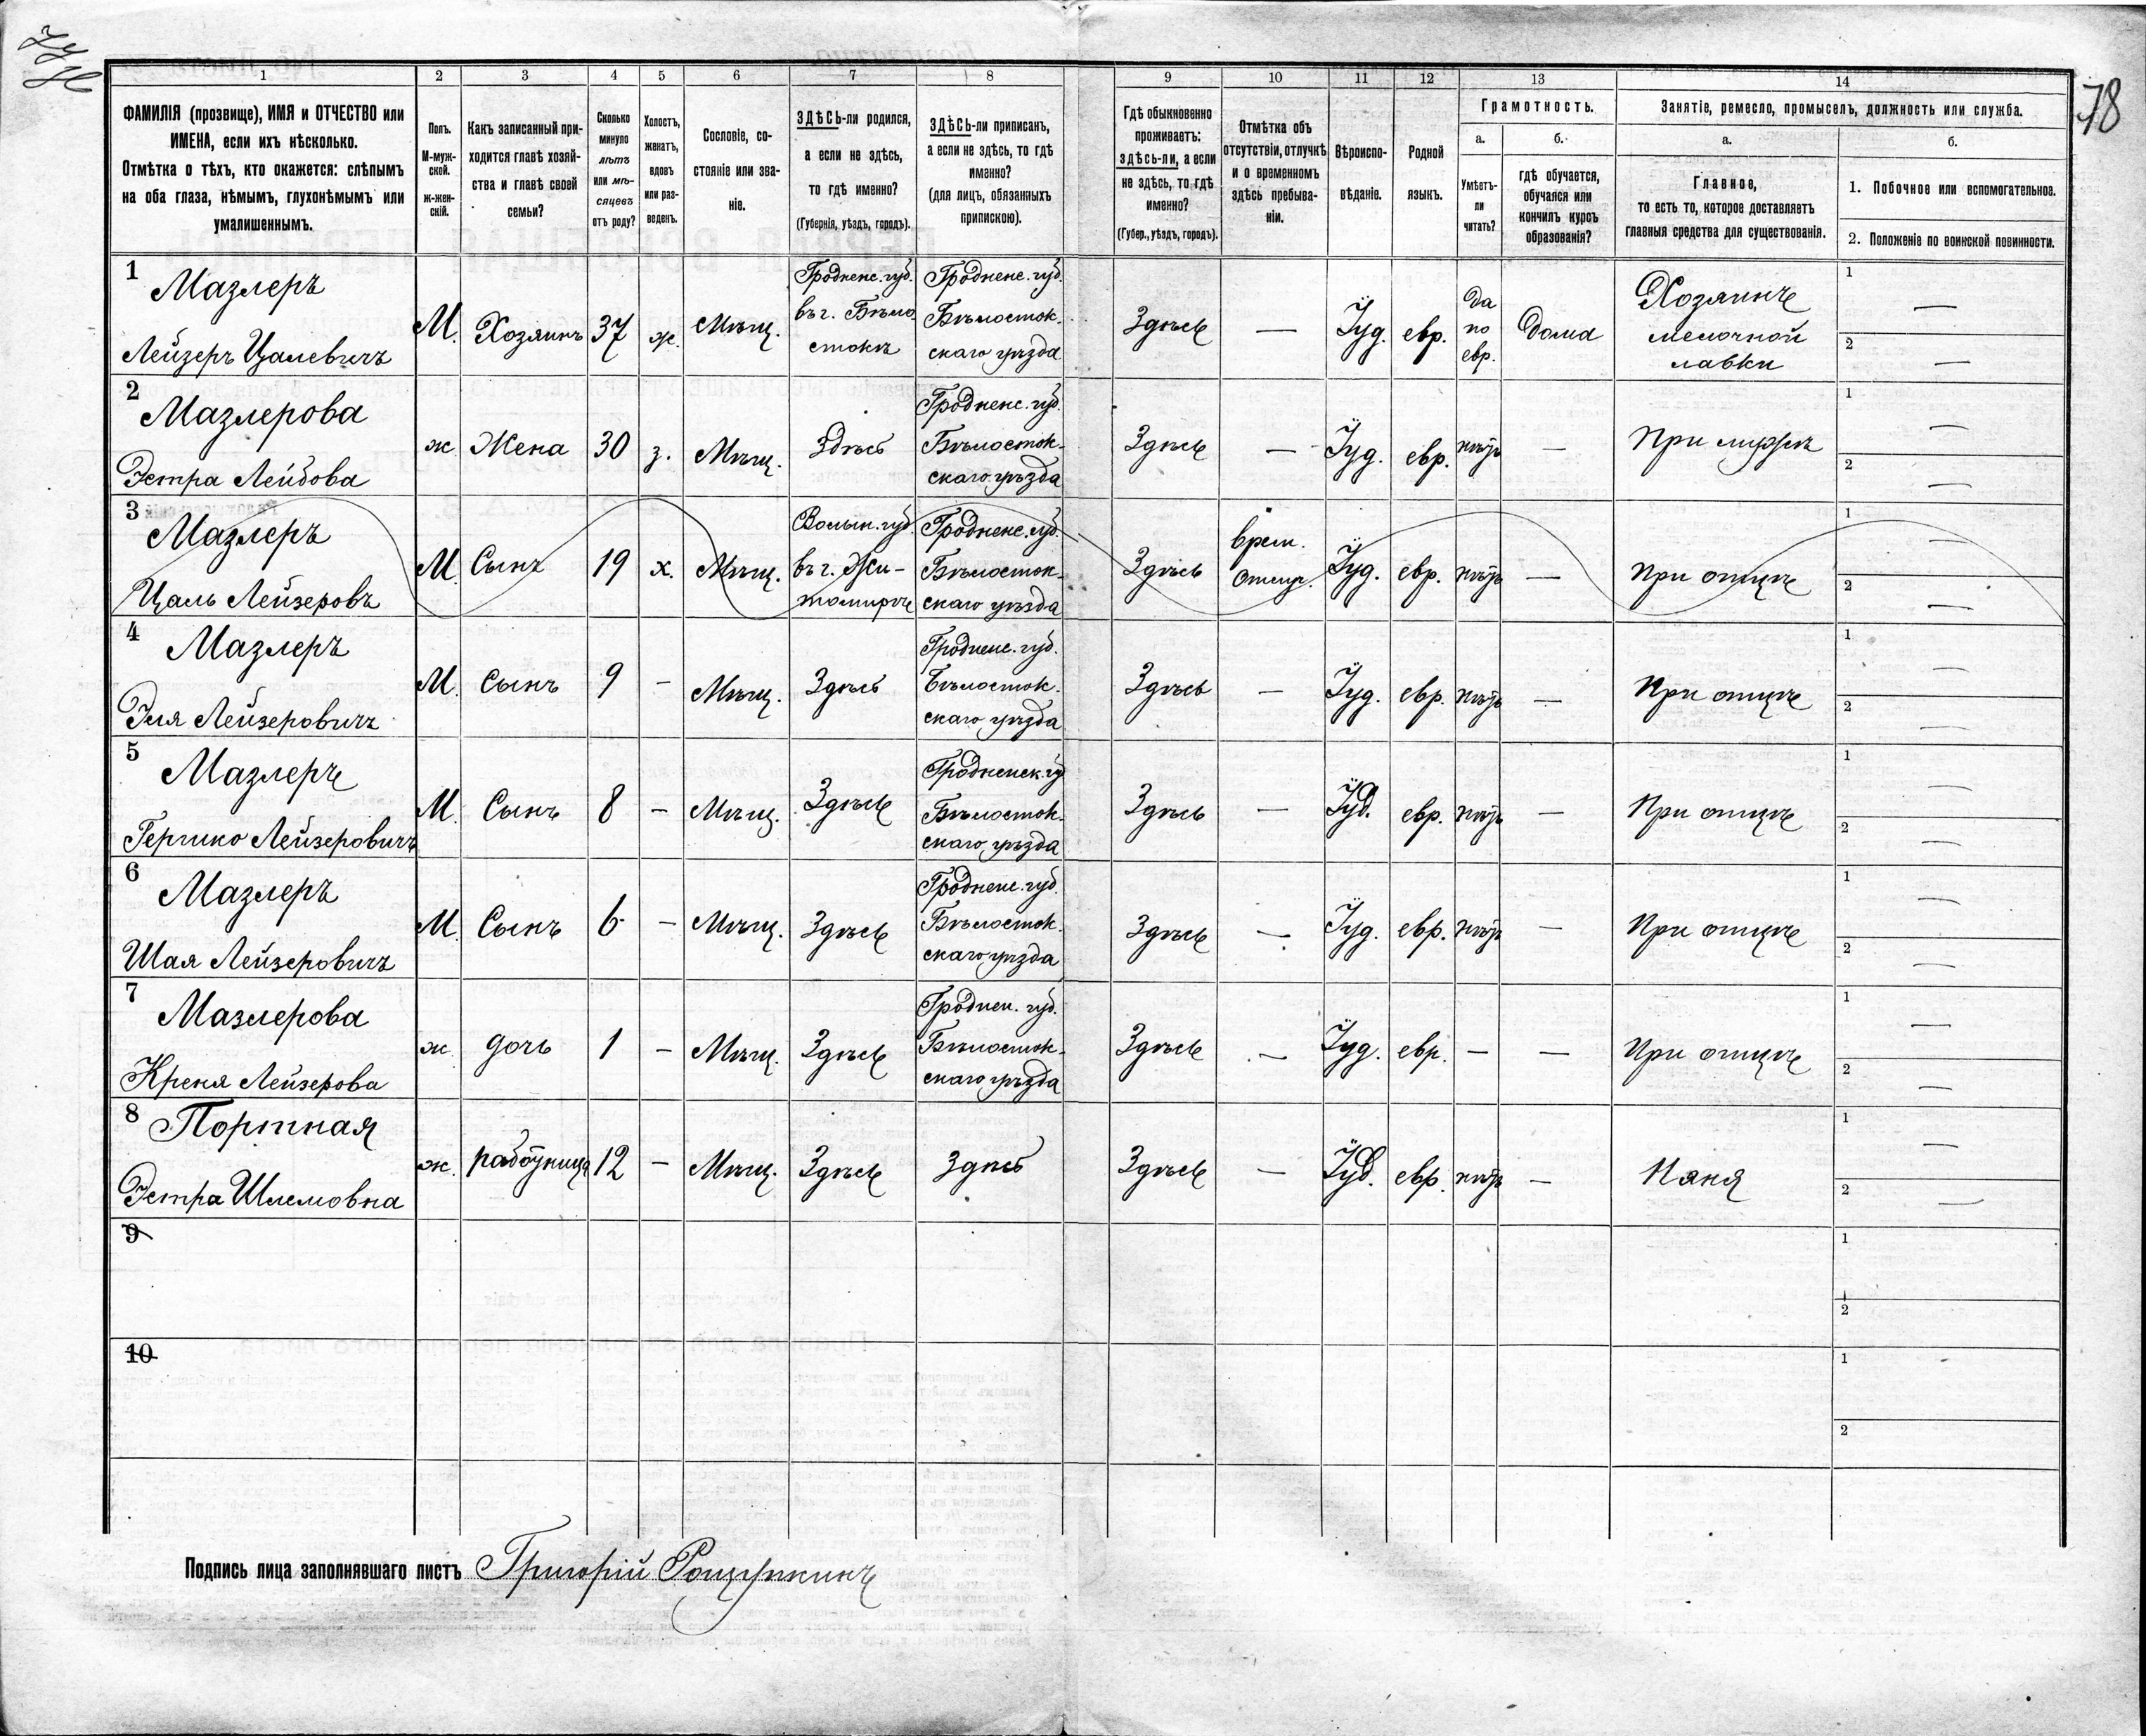 78
1 2 3 4 5 6 7 8 9 10 11 12 13 14
ФАМИЛІЯ (прозвище), ИМЯ и ОТЧЕСТВО или
ИМЕНА, если ихъ нѣсколько.
Отмѣтка о тѣхъ, кто окажется: слѣпымъ
на оба глаза, нѣмымъ, глухонѣмымъ или
умалишеннымъ.
Полъ.
М-муж-
ской.
ж-жен-
скій.
Какъ записанный при-
ходится главѣ хозяй-
ства и главѣ своей
семьи?
Сколько
минуло
лѣтъ
или мѣ-
сяцевъ
отъ роду?
Холостъ,
женатъ,
вдовъ
или раз-
веденъ.
Сословіе, со-
стояніе или зва-
ніе.
ЗДѢСЬ-ли родился,
а если не здѣсь,
то гдѣ именно?
(Губернія, уѣздъ, городъ).
ЗДѢСЬ-ли приписанъ,
а если не здѣсь, то гдѣ
именно?
(для лицъ, обязанныхъ
припискою).
Гдѣ обыкновенно
проживаетъ:
здѣсь-ли, а если
не здѣсь, то гдѣ
именно?
(Губер., уѣздъ, городъ).
Отмѣтка объ
отсутствіи, отлучкѣ
и о временномъ
здѣсь пребыва-
ніи.
Вѣроиспо-
вѣданіе.
Родной
языкъ.
Грамотность.
а.
Умѣетъ-
ли
читать?
б.
гдѣ обучается,
обучался или
кончилъ курсъ
образованія?
Занятіе, ремесло, промыселъ, должность или служба.
а.
Главное,
то есть то, которое доставляетъ
главныя средства для существованія.
б.
1. Побочное или вспомогательное.
2. Положеніе по воинской повинности.
1
Мазлеръ
Лейзеръ Цалевичъ
М.
Хозяинъ
37
ж.
Мѣщ.
Гродненс. губ.
въ г. Бѣло-
стокѣ
Гродненс. губ.
Бѣлосток-
скаго уѣзда
Здѣсь
—
Іуд.
евр.
да
по
евр.
Дома
Хозяинъ
мелочной
лавки
1 —
2 —
2
Мазлерова
Эстра Лейбова
ж
Жена
30
з.
Мѣщ.
Здѣсь
Гродненс. губ.
Бѣлосток-
скаго уѣзда
Здѣсь
—
Іуд.
евр.
нѣтъ
—
При мужѣ
1 —
2 —
3
Мазлеръ
Цаль Лейзеровъ
М.
Сынъ
19
х.
Мѣщ.
Волын. губ.
въ г. Жи-
томирѣ
Гродненс. губ.
Бѣлосток-
скаго уѣзда
Здѣсь
врем.
отлуч.
Іуд.
евр.
нѣтъ
—
При отцѣ
1 —
2 —
4
Мазлеръ
Эля Лейзеровичъ
М.
Сынъ
9
—
Мѣщ.
Здѣсь
Гродненс. губ.
Бѣлосток-
скаго уѣзда
Здѣсь
—
Іуд.
евр.
нѣтъ
—
При отцѣ
1 —
2 —
5
Мазлеръ
Гершко Лейзеровичъ
М.
Сынъ
8
—
Мѣщ.
Здѣсь
Гродненск. гу
Бѣлосток-
скаго уѣзда
Здѣсь
—
Іуд.
евр.
нѣтъ
—
При отцѣ
1 —
2 —
6
Мазлеръ
Шая Лейзеровичъ
М.
Сынъ
6
—
Мѣщ.
Здѣсь
Гродненс. губ.
Бѣлосток-
скаго уѣзда
Здѣсь
—
Іуд.
евр.
нѣтъ
—
При отцѣ
1 —
2 —
7
Мазлерова
Креня Лейзерова
ж.
дочь
1
—
Мѣщ.
Здѣсь
Гроднен. губ.
Бѣлосток-
скаго уѣзда
Здѣсь
—
Іуд.
евр.
—
—
При отцѣ
1 —
2 —
8
Портная
Эстра Шлемовна
ж.
работница
12
—
Мѣщ.
Здѣсь
здѣсь
Здѣсь
—
Іуд.
евр.
нѣтъ
—
Няня
1 —
2 —
9
1
2
10
1
2
1
2
Подпись лица заполнявшаго листъ Григорій